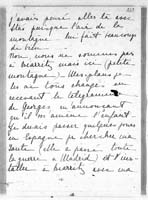 j'avais pensé
plus puisque l'air de la
montagne lui fait beaucoup
de bien.
Non nous ne sommes pas
à biarritz mais ici (petite
montagne). Mes plans je
les ai tous changés en
recevant le télégramme
de Georges m'annonçant
qu'il m'amène l'enfant.
Je devais passer quelques jours
en Espagne pr chercher ma
Santé (elle a passé toute
la guerre à Madrid) et m'ins-
taller à biarritz avec ma